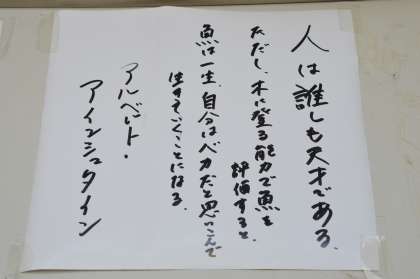 人は誰しも天才である.
ただし、木に登る能力で魚を
評価すると、
魚は一生、自分はバカだと思いこんで
生きていくことになる.
アルベルト・
アインシュタイン